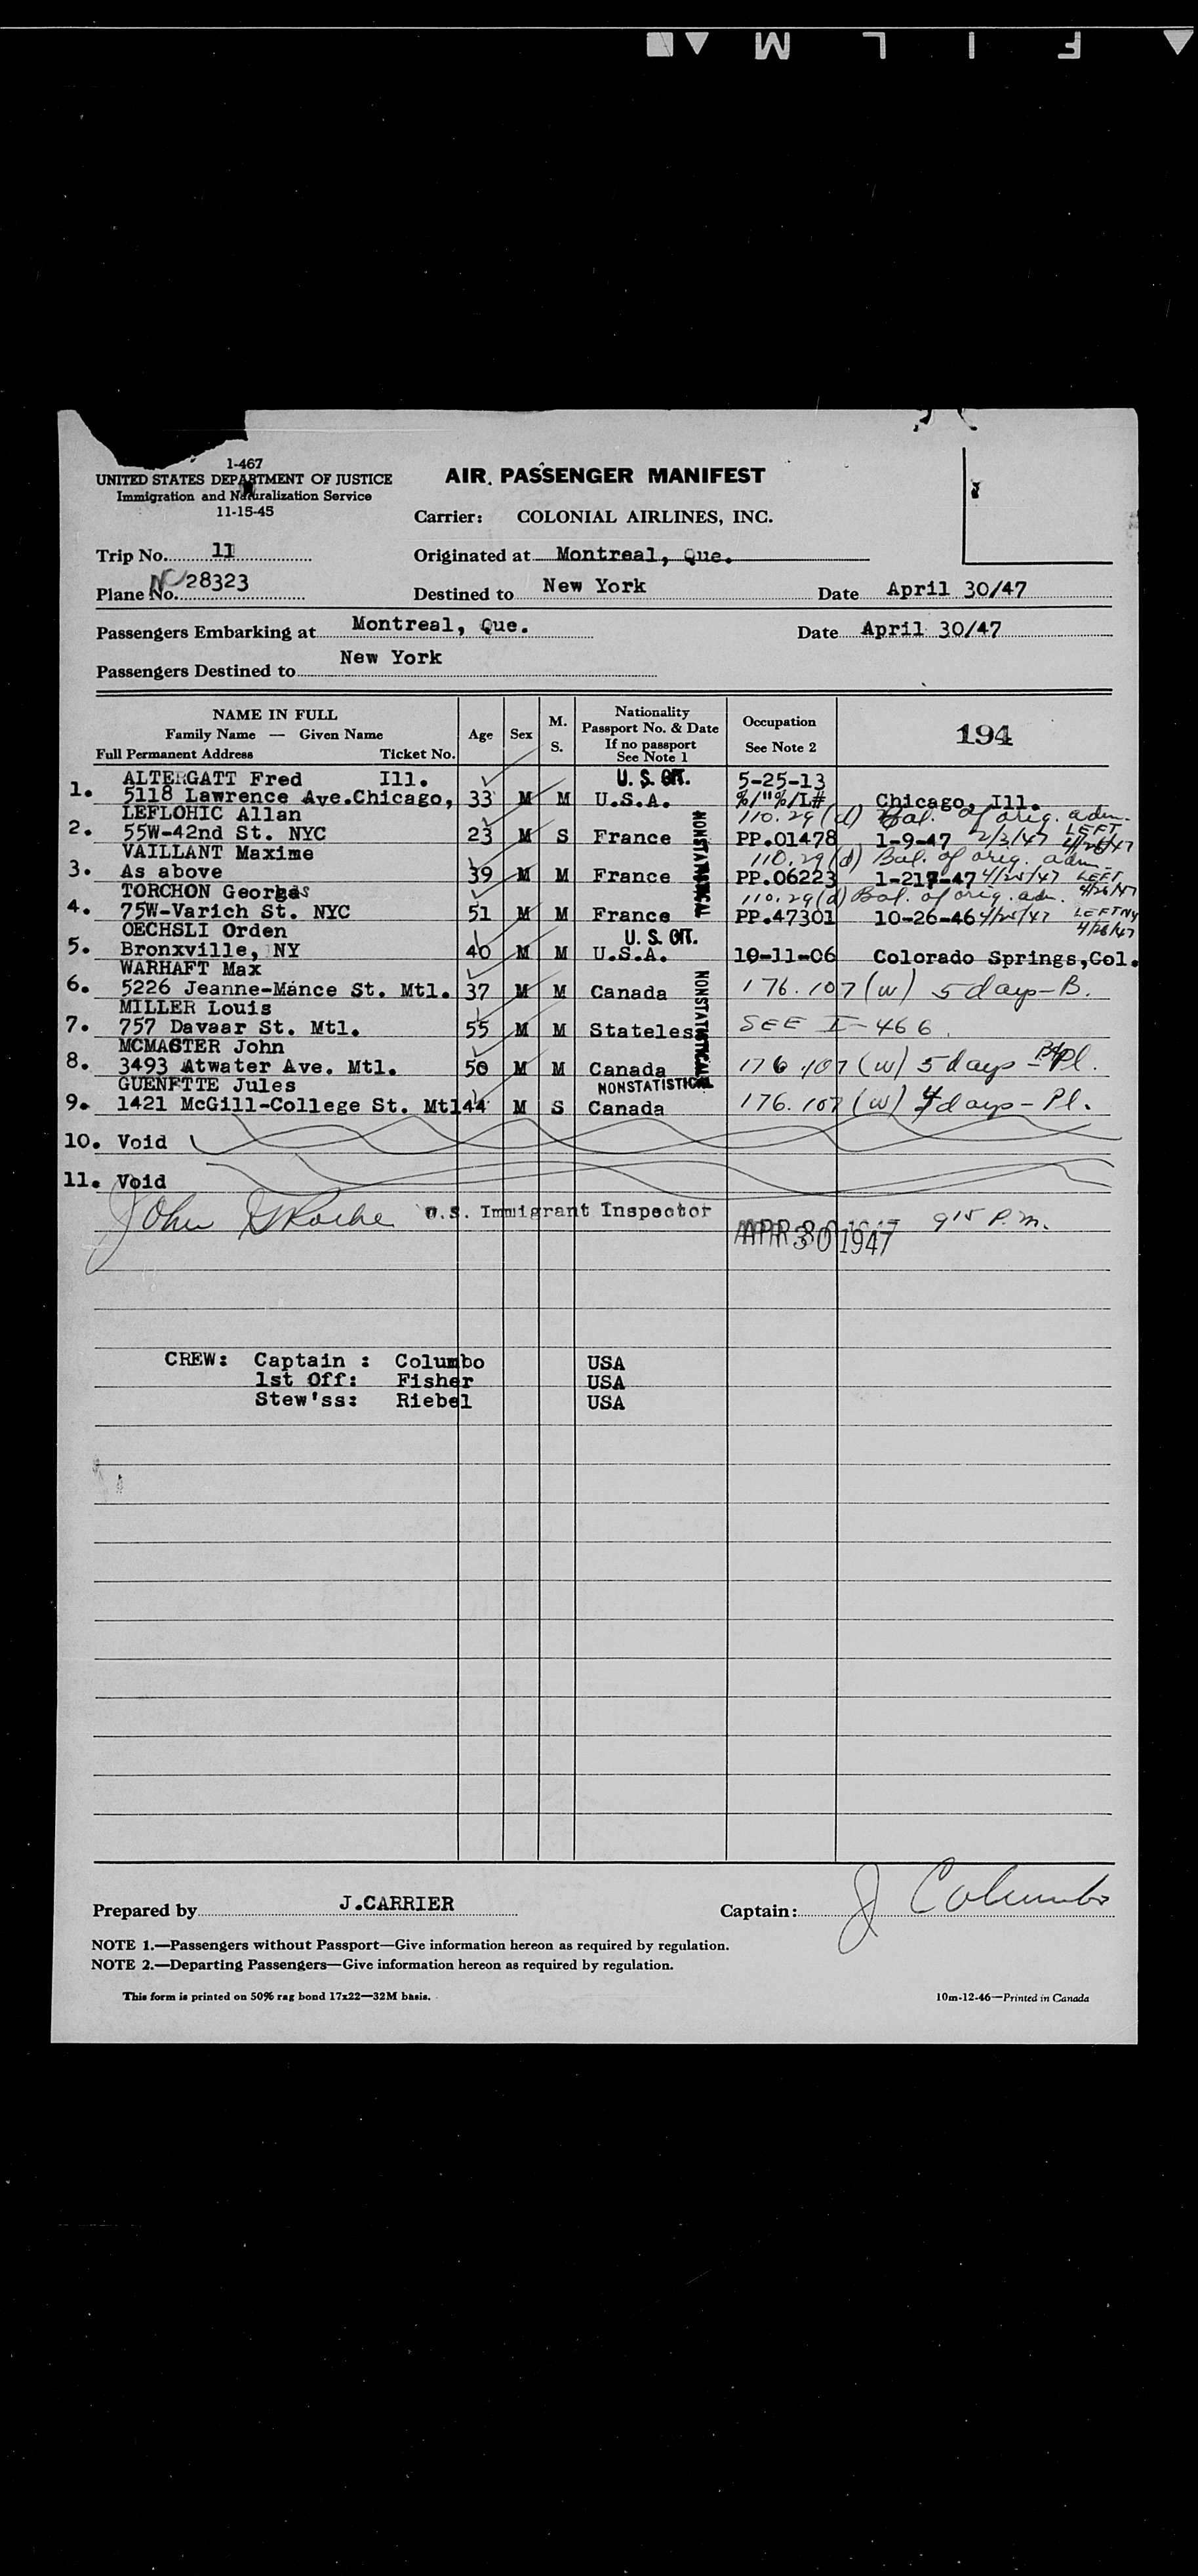 F I L M
1-467
UNITED STATES DEPARTMENT OF JUSTICE
Immigration and Naturalization Service
11-15-45
AIR PASSENGER MANIFEST
Carrier: COLONIAL AIRLINES, INC.
Trip No. 11 Originated at Montreal, Que.
Plane No. NC 28323 Destined to New York Date April 30/47
Passengers Embarking at Montreal, Que. Date April 30/47
Passengers Destined to New York
NAME IN FULL
Family Name — Given Name
Full Permanent Address Ticket No.
Age Sex M. S.
Nationality
Passport No. & Date
If no passport
See Note 1
Occupation
See Note 2
194
ALTERGATT Fred Ill. U. S. CIT. 5-25-13
1. 5118 Lawrence Ave.Chicago, 33 M M U.S.A. %/"%/L# Chicago, Ill.
LEFLOHIC Allan 110.29(d) Bal. of orig. adm.
2. 55W-42nd St. NYC 23 M S France PP.01478 1-9-47 2/3/47 LEFT 4/28/47
VAILLANT Maxime 110.29(d) Bal. of orig. adm.
3. As above 39 M M France PP.06223 1-217-47 4/28/47 LEFT 4/28/47
TORCHON Georges 110.29(d) Bal. of orig. adm.
4. 75W-Varich St. NYC 51 M M France PP.47301 10-26-46 4/28/47 LEFT NY 4/28/47
NONSTATISTICAL
OECHSLI Orden U. S. CIT.
5. Bronxville, NY 40 M M U.S.A. 10-11-06 Colorado Springs,Col.
WARHAFT Max
6. 5226 Jeanne-Mance St. Mtl. 37 M M Canada 176.107(w) 5 days-B.
MILLER Louis
7. 757 Davaar St. Mtl. 55 M M Stateless SEE I-466
MCMASTER John
8. 3493 Atwater Ave. Mtl. 50 M M Canada 176.107(w) 5 days - Pl.
NONSTATISTICAL
GUENETTE Jules NONSTATISTICAL
9. 1421 McGill-College St. Mtl 44 M S Canada 176.107(w) 4 days - Pl.
10. Void
11. Void
John U.S. Immigrant Inspector APR 30 1947 9 15 P.m.
CREW: Captain : Columbo USA
1st Off: Fisher USA
Stew'ss: Riebel USA
Prepared by J.CARRIER Captain: J Columbo
NOTE 1.—Passengers without Passport—Give information hereon as required by regulation.
NOTE 2.—Departing Passengers—Give information hereon as required by regulation.
This form is printed on 50% rag bond 17x22—32M basis. 10m-12-46—Printed in Canada